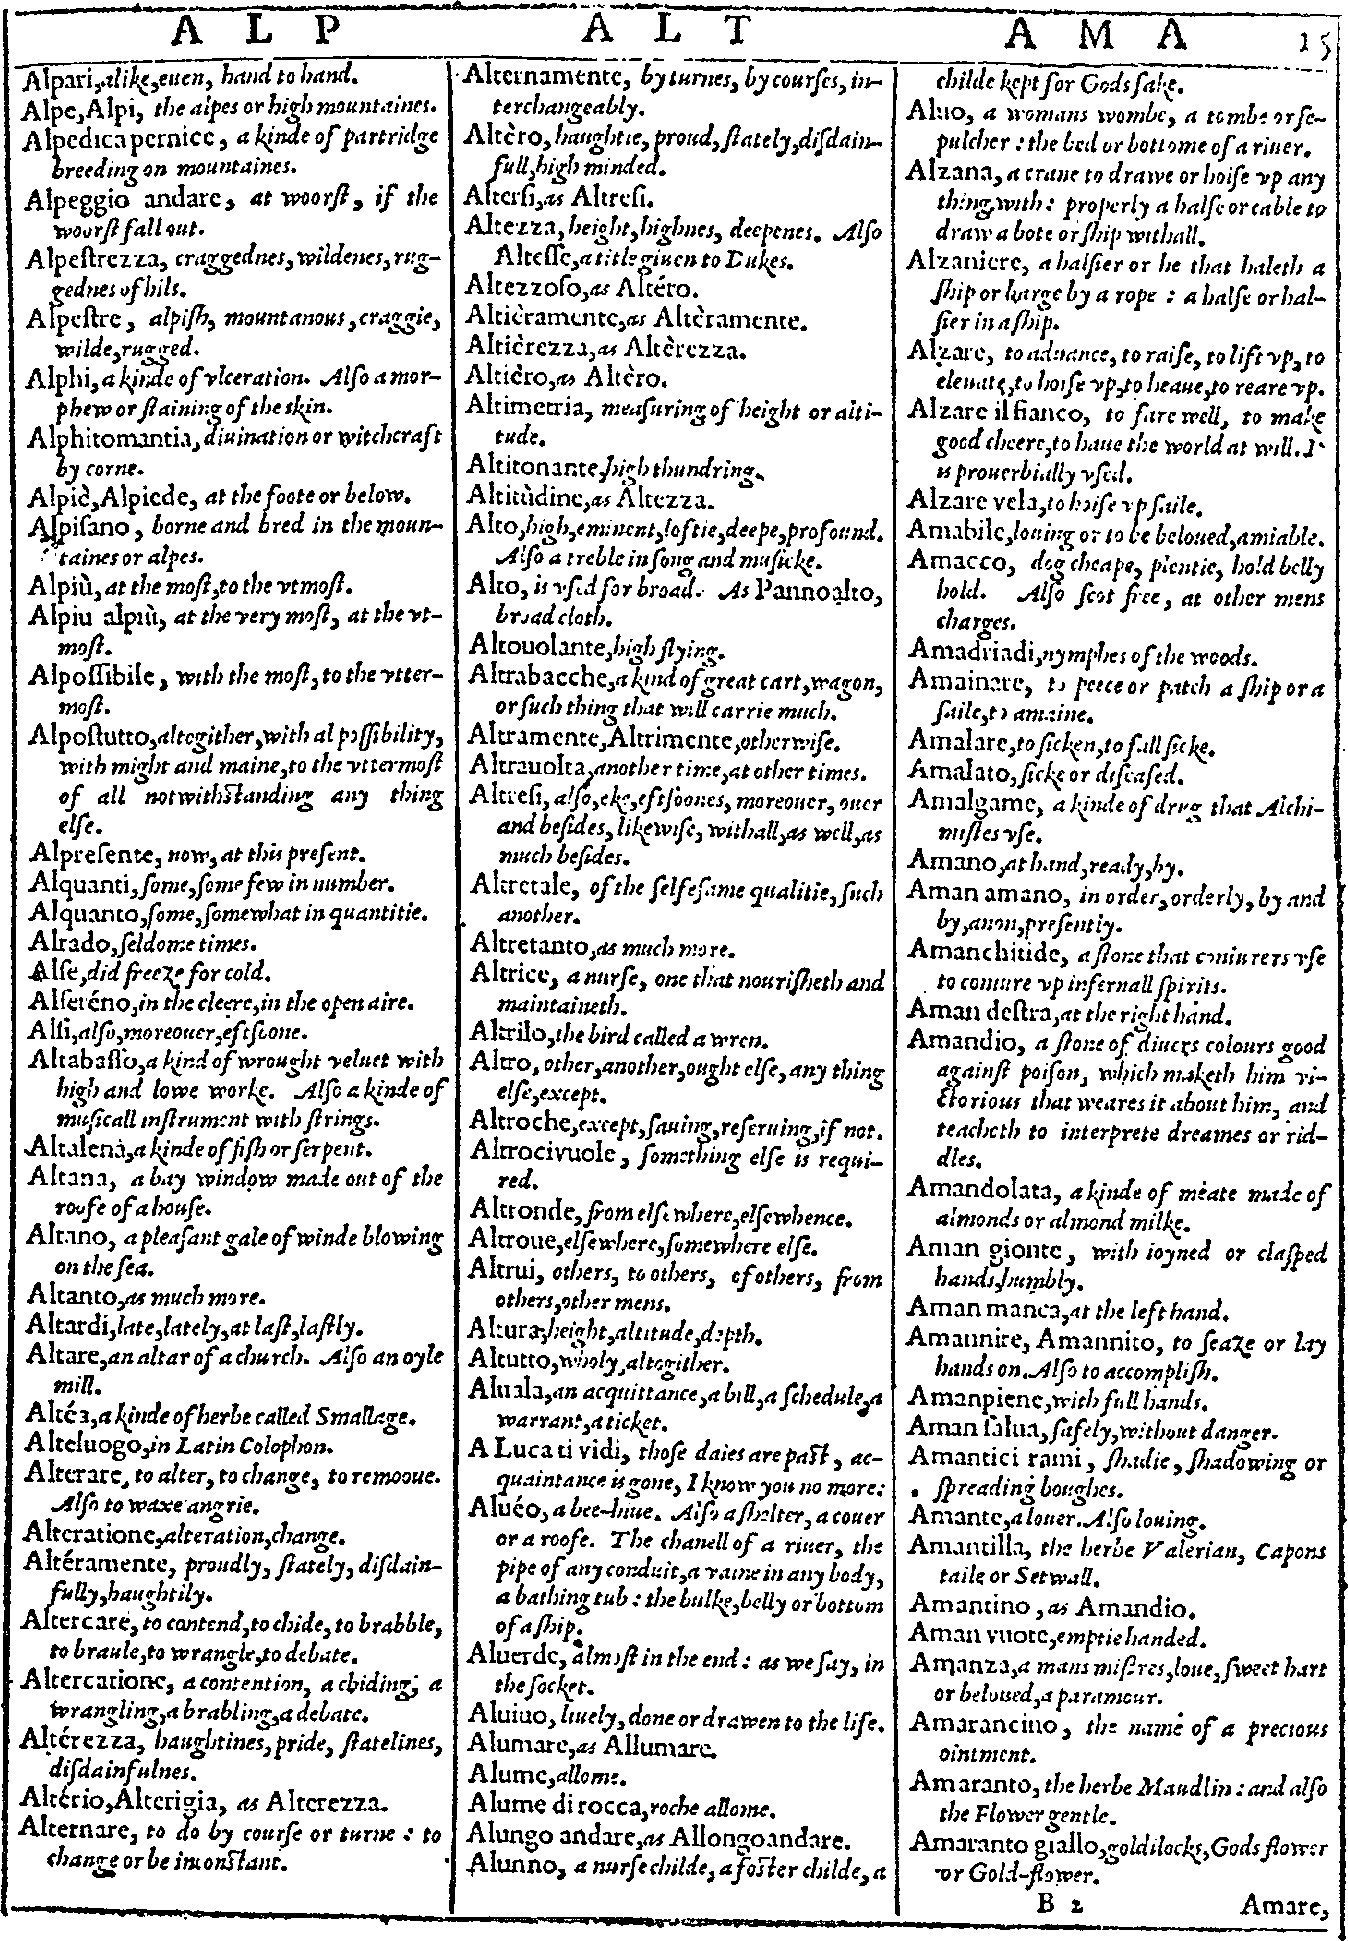 A L P
A L T
A M A 15
Alpari, alike, euen, hand to hand.
Alpe, Alpi, the alpes or high mountaines.
Alpedica pernice, a kinde of partridge
breeding on mountaines.
Alpeggio andare, at woorſt, if the
woorſt fall out.
Alpeſtrezza, craggednes, wildenes, rug-
gednes of hils.
Alpeſtre, alpiſh, mountanous, craggie,
wilde, rugged.
Alphi, a kinde of vlceration. Alſo a mor-
phew or ſtaining of the skin.
Alphitomantia, diuination or witchcraft
by corne.
Alpiè, Alpiede, at the foote or below.
Alpiſano, borne and bred in the moun-
taines or alpes.
Alpiù, at the moſt, to the vtmoſt.
Alpiu alpiù, at the very moſt, at the vt-
moſt.
Alpoſſibile, with the moſt, to the vtter-
moſt.
Alpoſtutto, altogither, with al poſſibility,
with might and maine, to the vttermoſt
of all notwithſtanding any thing
elſe.
Alpreſente, now, at this preſent.
Alquanti, ſome, ſome few in number.
Alquanto, ſome, ſomewhat in quantitie.
Alrado, ſeldome times.
Alſe, did freeze for cold.
Alſeréno, in the cleere, in the open aire.
Alſi, alſo, moreouer, eftſoone.
Altabaſſo, a kind of wrought veluet with
high and lowe worke. Alſo a kinde of
muſicall inſtrument with ſtrings.
Altalena, a kinde of fiſh or ſerpent.
Altana, a bay window made out of the
roofe of a houſe.
Altano, a pleaſant gale of winde blowing
on the ſea.
Altanto, as much more.
Altardi, late, lately, at laſt, laſtly.
Altare, an altar of a church. Alſo an oyle
mill.
Altéa, a kinde of herbe called Smallage.
Alteluogo, in Latin Colophon.
Alterare, to alter, to change, to remooue.
Alſo to waxe angrie.
Alteratione, alteration, change.
Altéramente, proudly, ſtately, diſdain-
fully, haughtily.
Altercare, to contend, to chide, to brabble,
to braule, to wrangle, to debate.
Altercatione, a contention, a chiding, a
wrangling, a brabling, a debate.
Altérezza, haughtines, pride, ſtatelines,
diſdainfulnes.
Altério, Alterigia, as Alterezza.
Alternare, to do by courſe or turne : to
change or be inconſtant.
Alternamente, by turnes, by courſes, in-
terchangeably.
Altèro, haughtie, proud, ſtately, diſdain-
full, high minded.
Alterſi, as Altreſi.
Altezza, height, highnes, deepenes. Alſo
Alteſſe, a title giuen to Dukes.
Altezzoſo, as Altéro.
Altièramente, as Altèramente.
Altièrezza, as Altèrezza.
Altièro, as Altèro.
Altimetria, meaſuring of height or alti-
tude.
Altitonante, high thundring.
Altitùdine, as Altezza.
Alto, high, eminent, loftie, deepe, profound.
Alſo a treble in ſong and muſicke.
Alto, is vſed for broad. As Panno alto,
broad cloth.
Altouolante, high flying.
Altrabacche, a kind of great cart, wagon,
or ſuch thing that will carrie much.
Altramente, Altrimente, otherwiſe.
Altrauolta, another time, at other times.
Altreſi, alſo, eke, eftſoones, moreouer, ouer
and beſides, likewiſe, withall, as well, as
much beſides.
Altretale, of the ſelfeſame qualitie, ſuch
another.
Altretanto, as much more.
Altrice, a nurſe, one that nouriſheth and
maintaineth.
Altrilo, the bird called a wren.
Altro, other, another, ought elſe, any thing
elſe, except.
Altroche, except, ſauing, reſeruing, if not.
Altrocivuole, ſomething elſe is requi-
red.
Altronde, from elſe where, elſewhence.
Altroue, elſewhere, ſomewhere elſe.
Altrui, others, to others, of others, from
others, other mens.
Altura, height, altitude, depth.
Altutto, wholy, altogither.
Aluala, an acquittance, a bill, a ſchedule, a
warrant, a ticket.
A Luca ti vidi, thoſe daies are paſt, ac-
quaintance is gone, I know you no more:
Aluéo, a bee-hiue. Alſo a ſhelter, a couer
or a roofe. The chanell of a riuer, the
pipe of any conduit, a vaine in any body,
a bathing tub : the bulke, belly or bottom
of a ſhip.
Aluerde, almoſt in the end : as we ſay, in
the ſocket.
Aluiuo, liuely, done or drawen to the life.
Alumare, as Allumare.
Alume, allome.
Alume di rocca, roche allome.
Alungo andare, as Allongo andare.
Alunno, a nurſe childe, a foſter childe, a
childe kept for Gods ſake.
Aluo, a womans wombe, a tombe or ſe-
pulcher : the bed or bottome of a riuer.
Alzana, a crane to drawe or hoiſe vp any
thing with : properly a halſe or cable to
draw a bote or ſhip withall.
Alzaniere, a halſier or he that haleth a
ſhip or barge by a rope : a halſe or hal-
ſier in a ſhip.
Alzare, to aduance, to raiſe, to lift vp, to
eleuate, to hoiſe vp, to heaue, to reare vp.
Alzare il fianco, to fare well, to make
good cheere, to haue the world at will. It
is prouerbially vſed.
Alzare vela, to hoiſe vp ſaile.
Amabile, louing or to be beloued, amiable.
Amacco, dog cheape, plentie, hold belly
hold. Alſo ſcot free, at other mens
charges.
Amadriadi, nymphes of the woods.
Amainare, to peece or patch a ſhip or a
ſaile, to amaine.
Amalare, to ſicken, to fall ſicke.
Amalato, ſicke or diſeaſed.
Amalgame, a kinde of drug that Alchi-
miſtes vſe.
Amano, at hand, ready, by.
Aman amano, in order, orderly, by and
by, anon, preſently.
Amanchitide, a ſtone that coniurers vſe
to coniure vp infernall ſpirits.
Aman deſtra, at the right hand.
Amandio, a ſtone of diuers colours good
againſt poiſon, which maketh him vi-
ctorious that weares it about him, and
teacheth to interprete dreames or rid-
dles.
Amandolata, a kinde of meate made of
almonds or almond milke.
Aman gionte, with ioyned or claſped
hands, humbly.
Aman manca, at the left hand.
Amannire, Amannito, to ſeaze or lay
hands on. Alſo to accompliſh.
Amanpiene, with full hands.
Aman ſalua, ſafely, without danger.
Amantici rami, ſhadie, ſhadowing or
ſpreading boughes.
Amante, a louer. Alſo louing.
Amantilla, the herbe Valerian, Capons
taile or Setwall.
Amantino, as Amandio.
Aman vuote, emptie handed.
Amanza, a mans miſtres, loue, ſweet hart
or beloued, a paramour.
Amarancino, the name of a precious
ointment.
Amaranto, the herbe Maudlin : and alſo
the Flower gentle.
Amaranto giallo, goldilocks, Gods flower
or Gold-flower.
B 2 Amare,